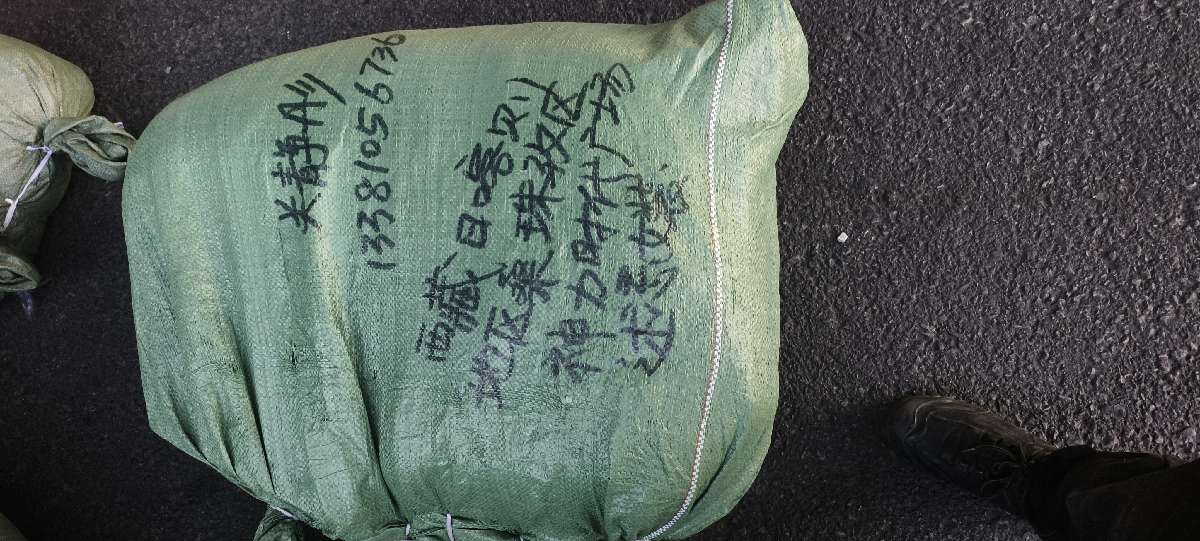 关静 A川
13381056736
西藏日喀则
地区桑珠孜区
神力时代广场